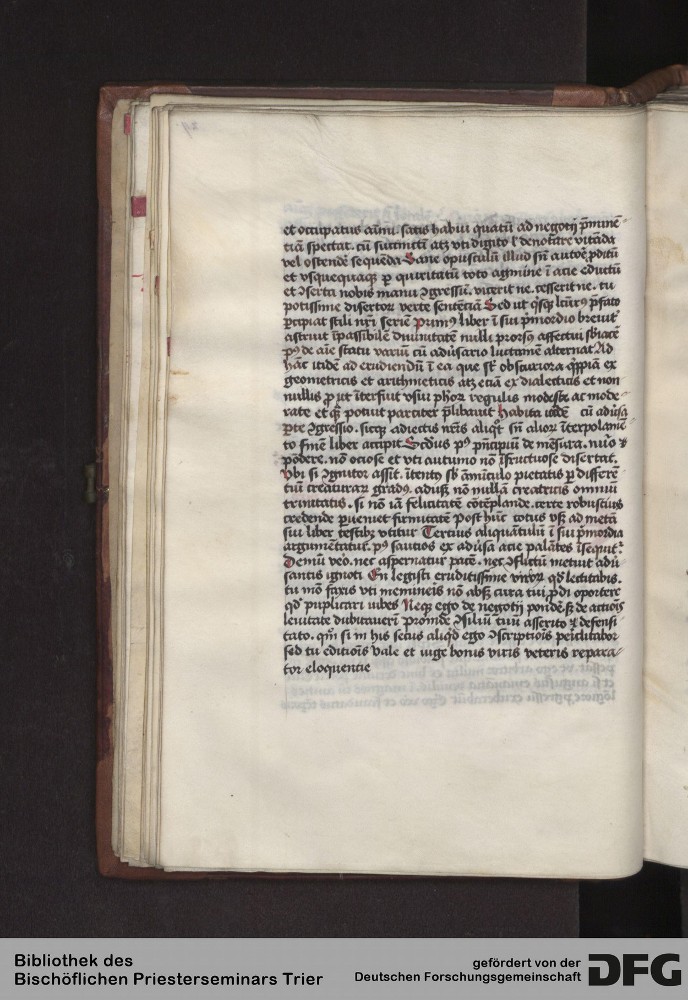 et occupatus aīmi. satis habui quatū ad negotij p̄minē-
tiā spectat. cū succinctī atꝫ vti digito l' denotāre vitāda
vel ostendē sequēda Sane opusculū illud sn̄ autoē ꝓditū
et vsquequaqꝫ ꝑ quiritatū toto agmine ī acie eductū
et ꝯserta nobis manu ꝯgressū. vicerit ne. cesserit ne. tu
potissime disertor verte sentenciā Sed ut qͥsqꝫ lctūrꝰ p̄fato
ꝑcipiat stili nr̄i seriē primꝰ liber ī sui p̄mordio breuit'
astruit īpassibilē diuinitatē nulli prorsꝰ affectui sb̄iacē
pꝰ de aīe statu variū cū adūsario luctamē alternat Ad
hāc itidē ad erudiendū ī ea que st̄ obscuriora qͥppiā ex
geometricis et arithmeticis atꝫ eciā ex dialecticis et non
nullis ꝓ ut īterfuit vsui phōr regulis modeste ac mode-
rate et qͥꝫ potuit parciter p̄libauit habita itidē cū adūsa
ꝑte ꝯgressio. sicqꝫ adiectis nr̄is aliqͥt sn̄ alior īterpolamē-
to finē liber accipit Scd̄us pꝰ pn̄cipiū de mēsura. nūo ⁊
pōdere. nō ociose et vti autumo nō īfructuose disertat.
Vbi si ꝯgnitor assit. ītento sb̄ āminīculo pietatis ꝑ differē-
tiū creaturar gradꝰ. adusqꝫ nō nullā creatricis omniū
trinitatis. si nō iā felicitatē cōtēplande. certe robustius
credende ꝑueniet firmitatē Post hūc totus vsqꝫ ad metā
sui liber testibꝫ vtitur Tercius aliquātulū ī sui p̄mordia
argumētatur. pꝰ saucios ex adūsa acie palātes īsequit'.
Demū veo. nec aspernatur pacē. nec ꝯflictū metuit adū
santis ignoti En legisti eruditissime viror qd̄ lectitabis.
tu mō faxis vti memineīs nō absqꝫ cura tui ꝓdi oportere
qd̄ puplicari iubes Neqꝫ ego de negotij pondē sꝫ de actiois
leuitate dubitauerī proinde ꝯsiliū tuū asserito ⁊ defensi-
tato. qm̄ si in his secus aliqd̄ ego ꝯscriptiois periclitabor
sed tu editiois Vale et iuge bonis viris veteris repara-
tor eloquencie
Bibliothek des
Bischöflichen Priesterseminars Trier
gefördert von der
Deutschen Forschungsgemeinschaft
DFG